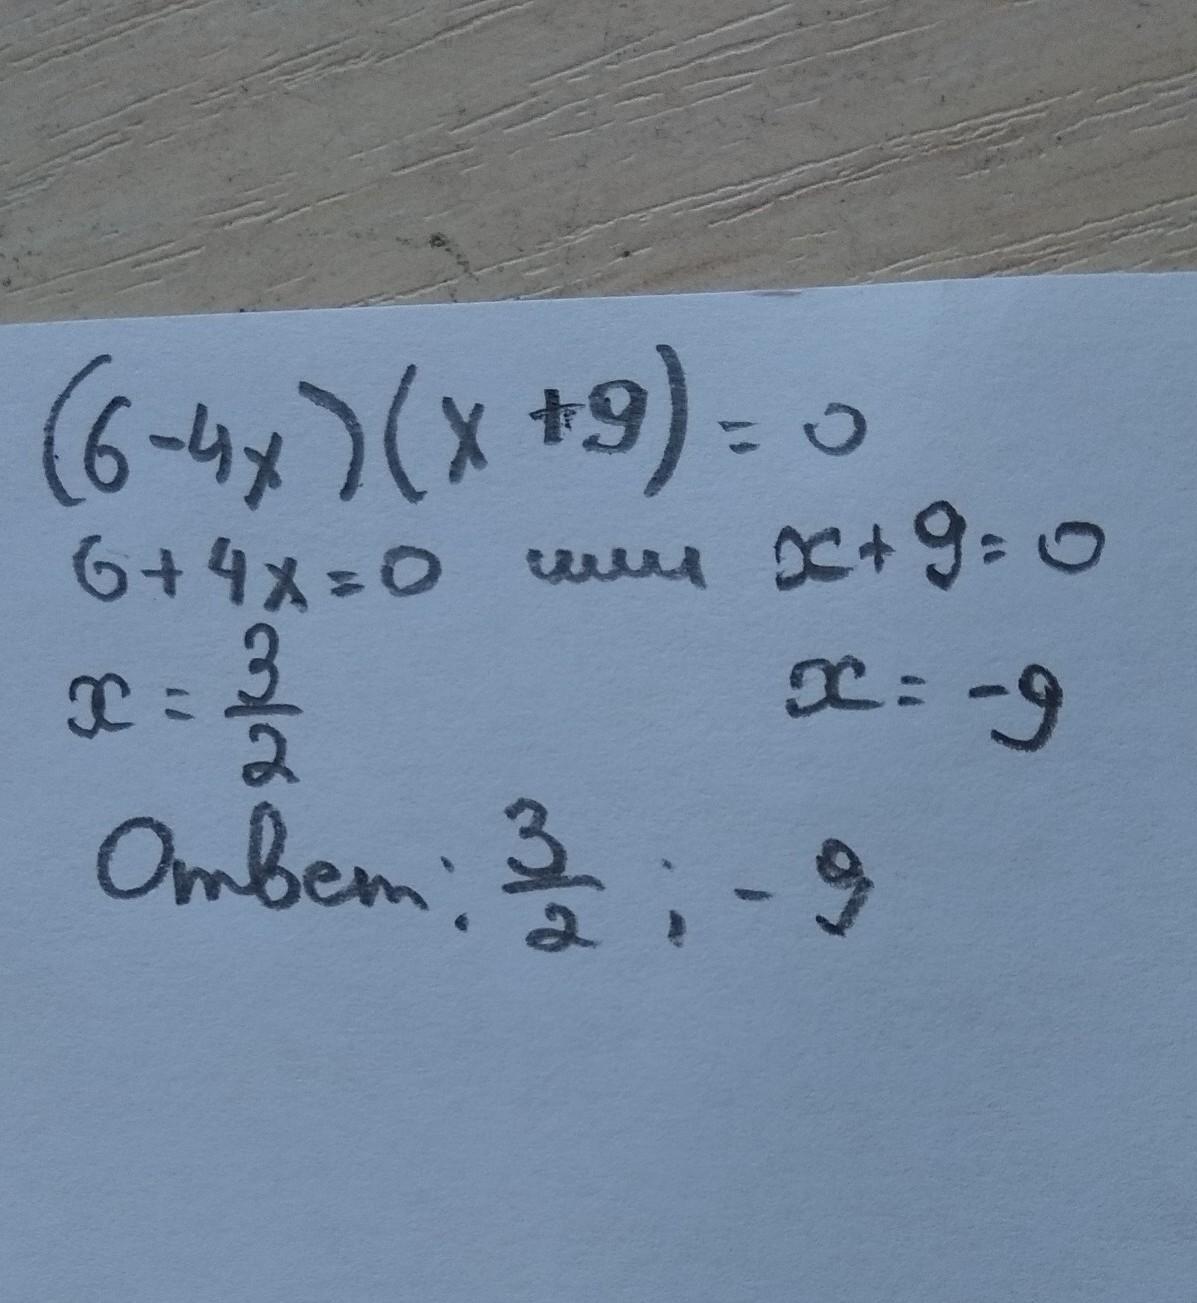 (6-4x)(x+9)=0
6+4x=0 или x+9=0
x=3/2 x=-9
Ответ: 3/2; -9